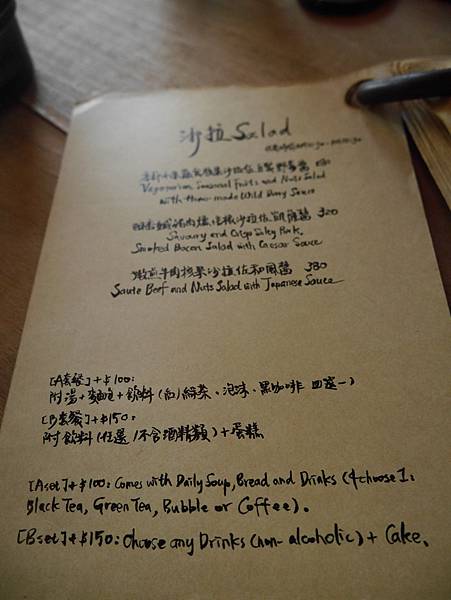 沙拉 Salad
季節水果蔬食核果沙拉佐自製野莓醬
Vegetarian, Seasonal Fruits and Nuts Salad
with Home-made Wild Berry Sauce
豬肉燻培根沙拉佐凱薩醬 320
Savoury and Crisp Silky Pork,
Smoked Bacon Salad with Caesar Sauce
嫩煎牛肉核果沙拉佐和風醬 380
Saute Beef and Nuts Salad with Japanese Sauce
[A套餐]+$100:
附湯+麵包+飲料(紅/綠茶、泡沫、黑咖啡 四選一)
[B套餐]+$150:
附飲料(任選/不含酒精類)+蛋糕
[A set]+$100: Comes with Daily Soup, Bread and Drinks (4 choose 1:
Black Tea, Green Tea, Bubble or Coffee).
[B set]+$150: Choose any Drinks (non-alcoholic) + Cake.